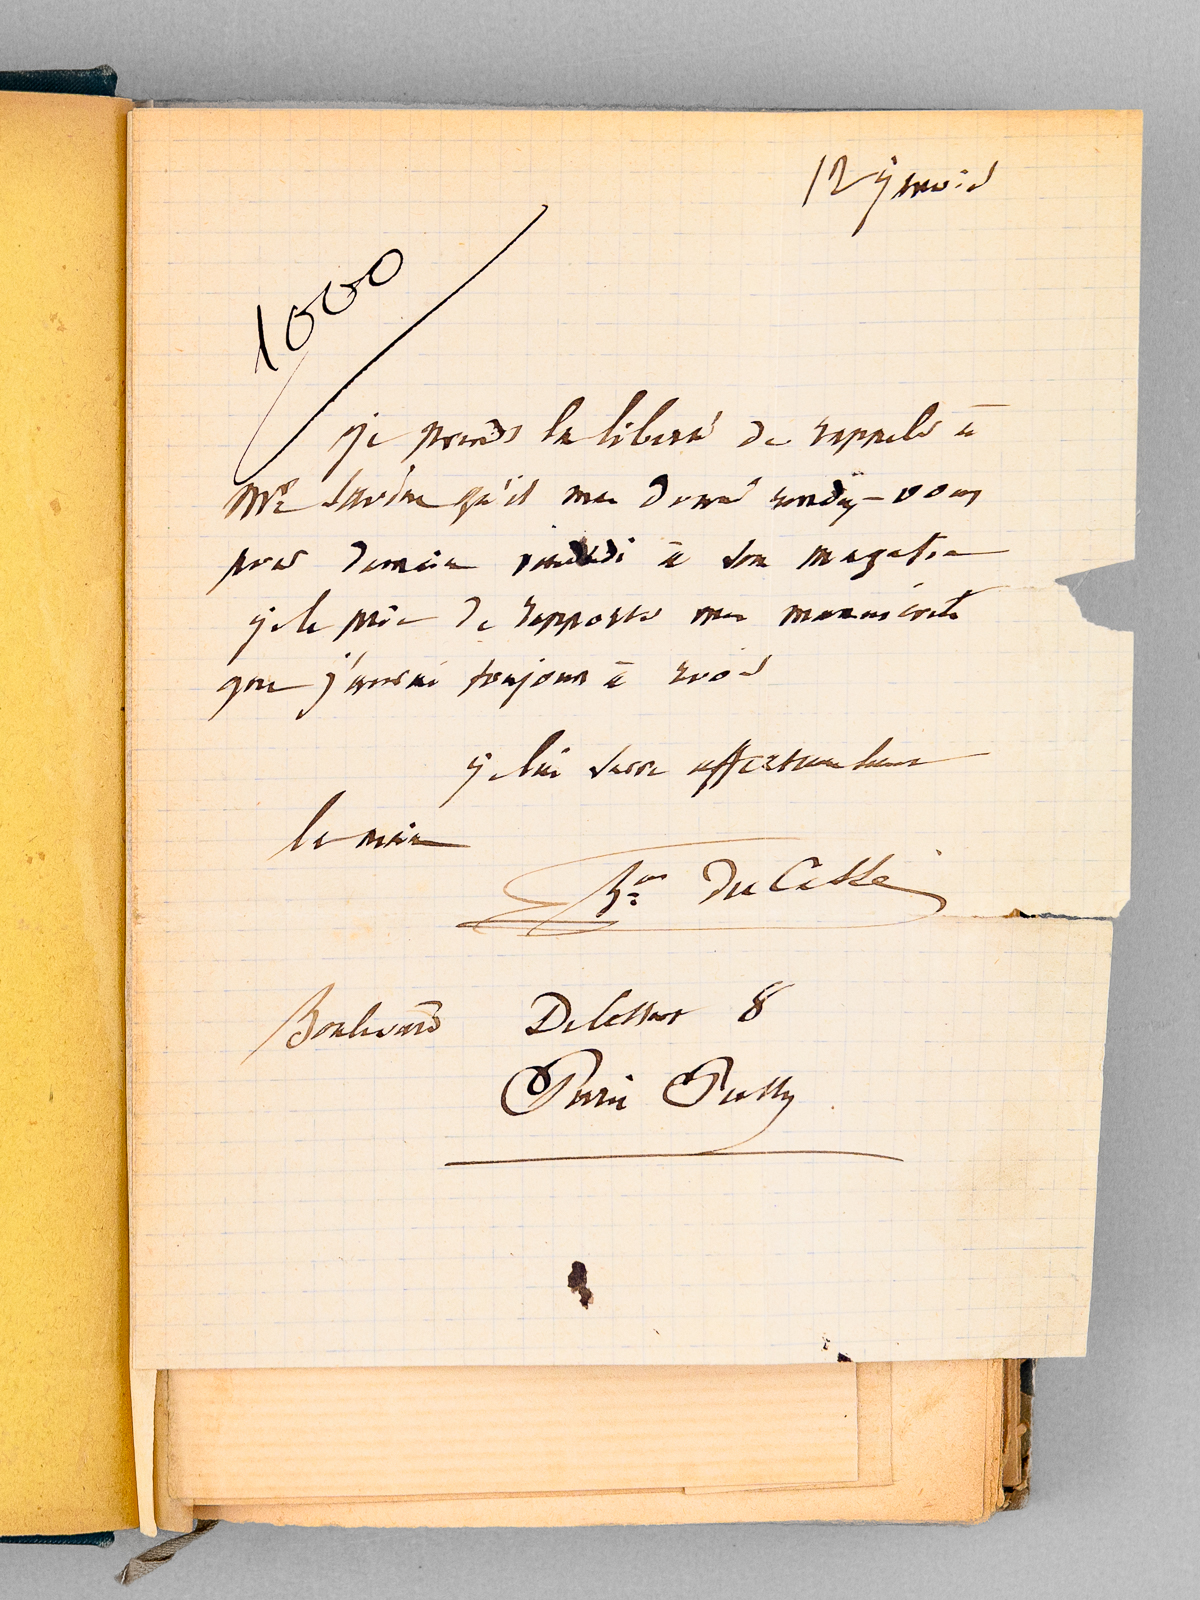 12 janvier
1000
je prends la liberté de rappeler à
Mr Savine qu'il m'a donné rendez-vous
pour demain vendredi à son magasin
je le prie de rapporter mes manuscrits
que j'aurai toujours à revoir
je lui serre affectueusement
la main
Bon Du Casse
Boulevard Delessert 8
Paris Passy